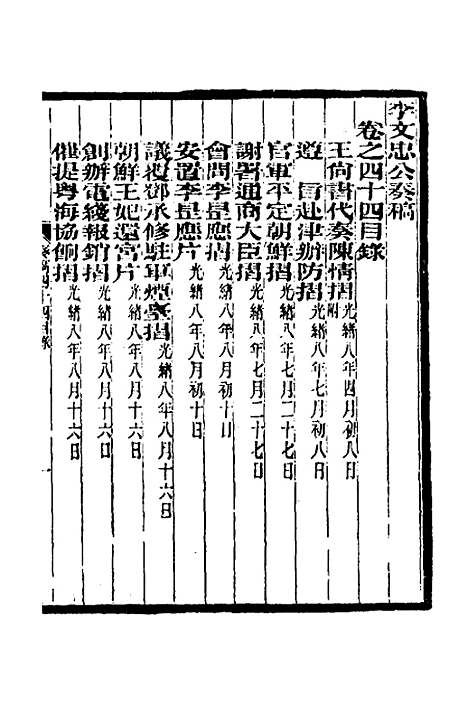 李文忠公奏稿
卷之四十四目錄
王尚書代奏陳情摺附 光緒八年四月初八日
遵 旨赴津辦防摺 光緒八年七月初八日
官軍平定朝鮮摺 光緒八年七月二十七日
謝署通商大臣摺 光緒八年七月二十七日
會問李昰應摺 光緒八年八月初十日
安置李昰應片 光緒八年八月初十日
議覆鄧承修駐軍煙臺摺 光緒八年八月十六日
朝鮮王妃還宮片 光緒八年八月十六日
創辦電綫報銷摺 光緒八年八月十六日
催提粵海協餉摺 光緒八年八月十六日
奏稿四十四目錄 一